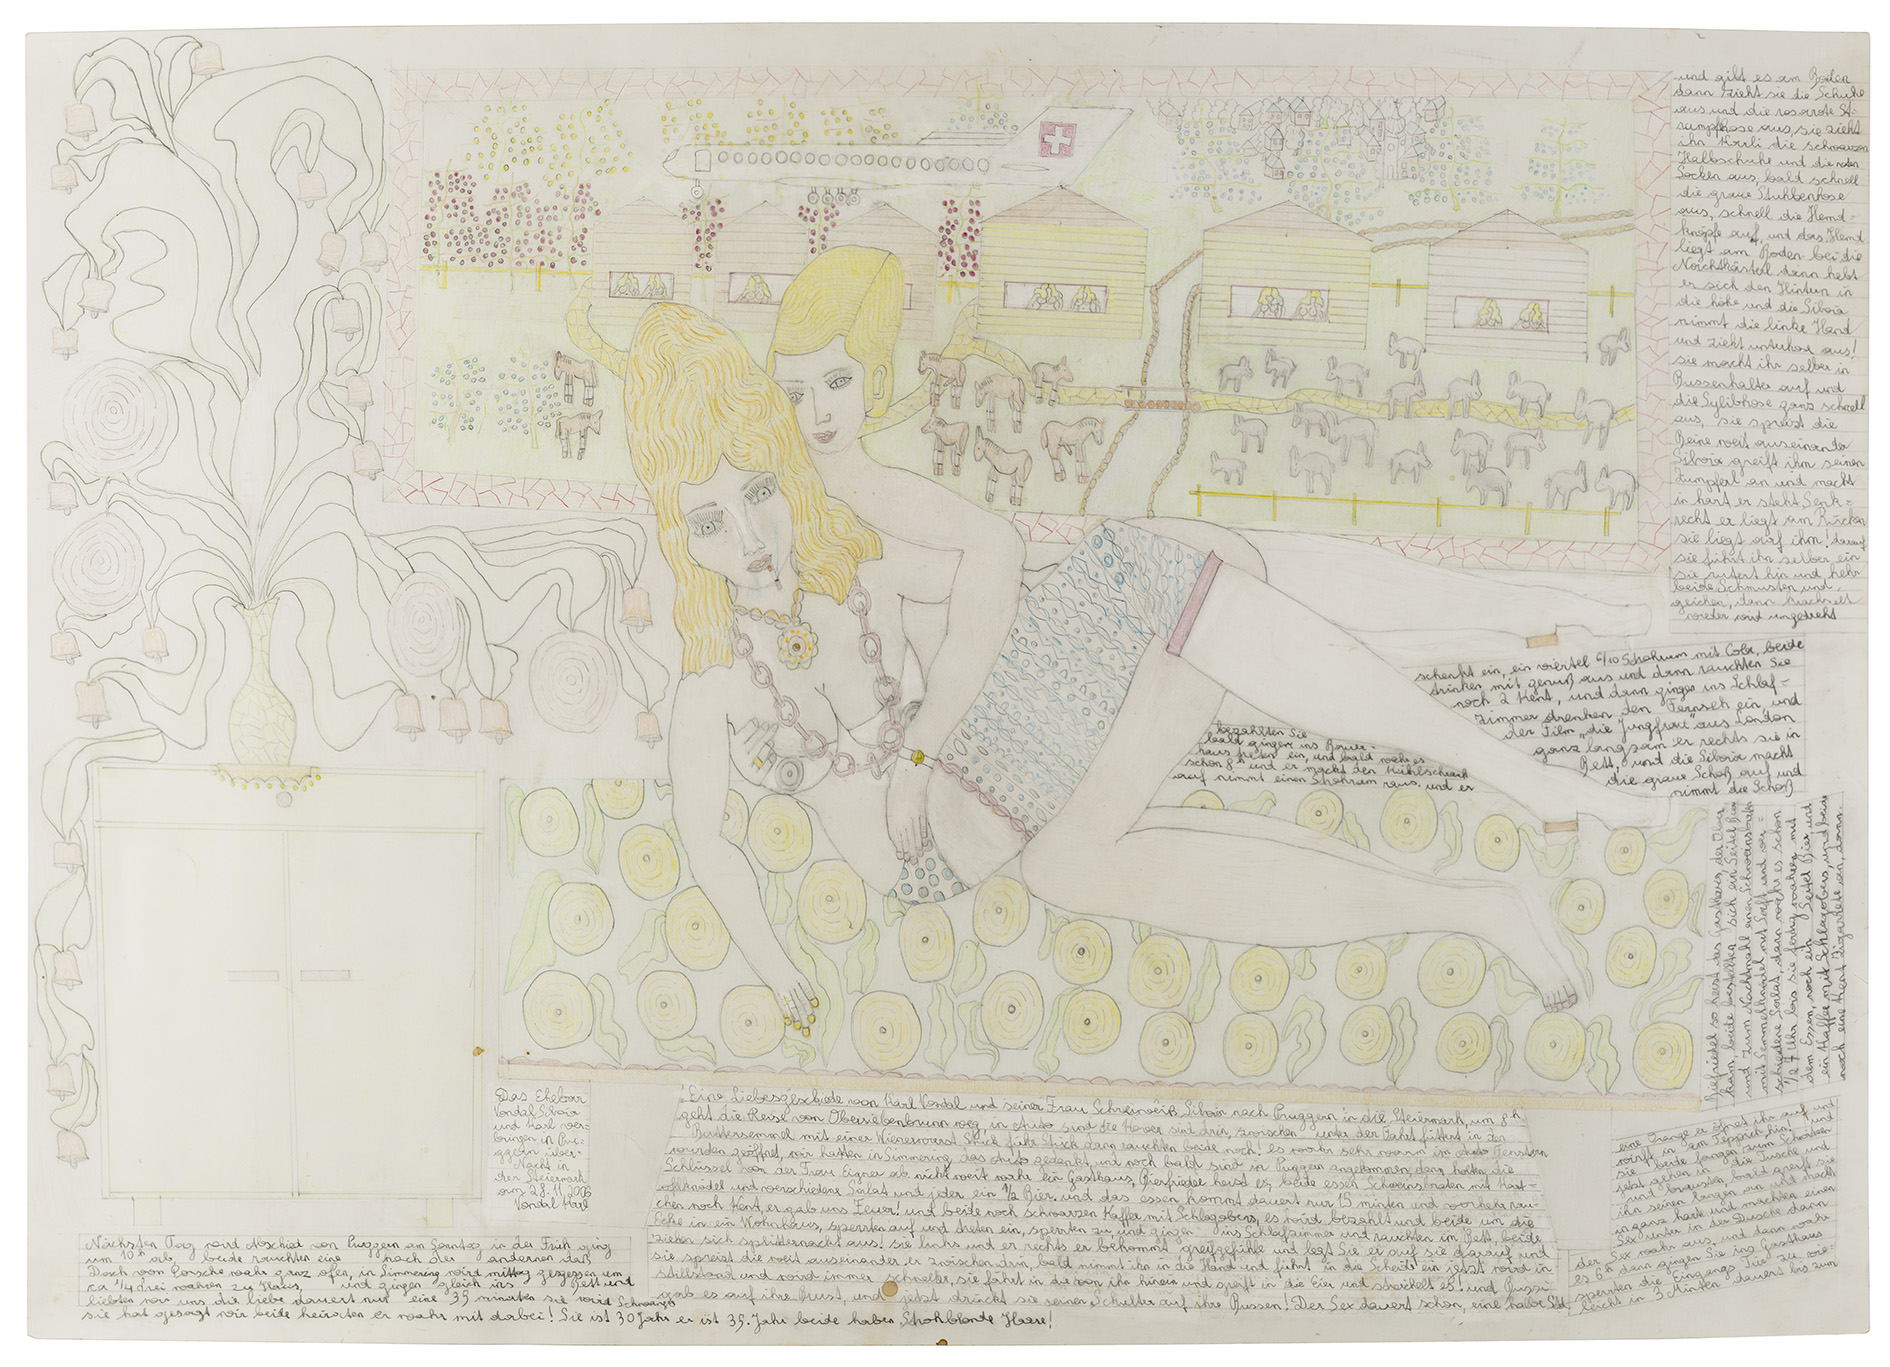 Das Ehebar
Vondal Siboia
und Karl ver=
bringen in Pru=
ggern über=
Nacht in
der Steiermark
am 28.11.2006
Vondal Karl
! Eine Liebesgeschichte von Karl Vondal und seiner Frau Siboia nach Pruggern in die Steiermark, um 8h
geht die Reise von Obersiebenbrunn weg, in Auto sind die drin, zwischen unter der Fahrt füttert in den
Buttersemmel mit einer Wienerwurst Stück für Stück dann rauchten beide noch! es war sehr warm im Auto Fenstern
wurden geöffnet, wir hatten in Simmering das Auto gedenkt, und noch bald sind in Puggern angekommen, dann holten die
Schlüssel von der Frau Eigner ab nicht weit wahr ein Gasthaus, heist es, beide essen Schweinsbraten mit Hart=
offknödel und verschiedene Salat und jeder ein 1/2 Bier. und das essen kommt dauert nur 15 minten und vorher rau=
chen noch Kent, er gab uns Feuer! und beide noch schwarzen Kaffee mit Schlagobers, es wird bezahlt und beide um die
Ecke in ein Wohnhaus, sperrten auf und treten ein, sperrten zu, und gingen ins Schlafzimmer und rauchten im Bett, beide
ziehen sich splitternacht aus! sie links und er rechts er bekommt greifgefühle und legt Sie er auf sie darauf und
sie spreist die weit auseinander er zwischen drin, bald nimmt ihn in die Hand und führt in die Scheide ein jetzt wird in
stillstand und wird immer schneller, sie fährt in die von ihn hinein und greift in die Eier und streichelt es! und Bussi
gab es auf ihre Brust, und jetzt drückt sie seinen Schulter auf ihre Bussen! Der Sex dauert schon, eine halbe Std,
eine Orange er öfnet ihr auf und
wirft in am Teppich hin! und
sie beide fangen zum Schmusen
jetzt gehen in die Dusche und
und brausten, bald greift sie
ihn seinen langen an und macht
in ganz hart und machten einen
Sex unter in der Dusche dann
der Sex wahr aus, und dann wahr
es 6h dann gingen Sie ins Gasthaus
sperrten die Eingangs Tür zu, wie=
leicht in 3 Minten dauert bis zum
Bierfriedel so heist das Gasthaus, der Ober
kam, beide bestellten sich ein Seitel Bier
und zum Nachtmahl einen Schweinsbraten
mit Semmelknödel mit Saft und ver=
schiedene Salat, dann wahr es schon
1/2 7 Uhr bis sie fertig wahren mit
dem Essen, noch ein Seitel Bier, und
ein Kaffee mit Schlagobers, und beide
noch eine Kent Zigardete an, dann
bezahlten Sie
bald gingen ins Bauer=
haus treten ein, und bald wahr es
schon 8h und er macht den Kühlschrank
auf nimmt einen Schohrum raus. und er
schenkt ein, ein viertel 6/10 Schohrum mit Cola, beide
trinken mit genuß aus und dann rauchten Sie
noch 2 Kent, und dann gingen ins Schlaf=
zimmer drehten den Fernseh ein und
der Film "die Jungfrau" aus London
ganz langsam er rechts sie in
Bett, und die Siboia macht
die graue Schoß auf und
nimmt die Schoß
und gibt es am Boden
dann zieht sie die Schuhe
aus und die rosarote St=
rumpfhose aus, sie zieht
ihn Karli die schwarzen
Halbschuhe und die roten
Socken aus, bald schnell
die graue Stuhbenhose
aus, schnell die Hemd=
knöpfe auf, und das Hemd
liegt am Boden bei die
Nachtkästal dann hebt
er sich den Hintern in
die höhe und die Siboia
nimmt die linke Hand
und zieht unterhose aus!
sie macht ihr selber in
Bussenhalter auf und
die Sylibhose ganz schnell
aus, sie spreizt die
Beine weit auseinander
Siboia greift ihm seinen
Lumpferl an und macht
in hart er steht Senk=
recht er liegt am Rücken
sie liegt auf ihm! darauf
sie führt ihn selber ein
sie rutert hin und hehr
beide Schmusten und
geichen, dann
wieder wird umgedreht
Nächsten Tag wird Abschied von Puggern am Sonntag in der Früh ging
10h ab beide rauchten eine nach der anderen daß
Dach vom Porsche wahr ganz ofen, in Simmering wird mittag gegessen um
ca 1/4 drei wahren zu Haus, und gingen gleich ins Bett und
liebten wir uns die liebe dauert nur eine 35 minarten sie wird Schwanger
sie hat gesagt wir beide heiraten er wahr mit dabei! Sie ist 30 Jahr er ist 35. Jahr beide haben, Strohblonde Haare!